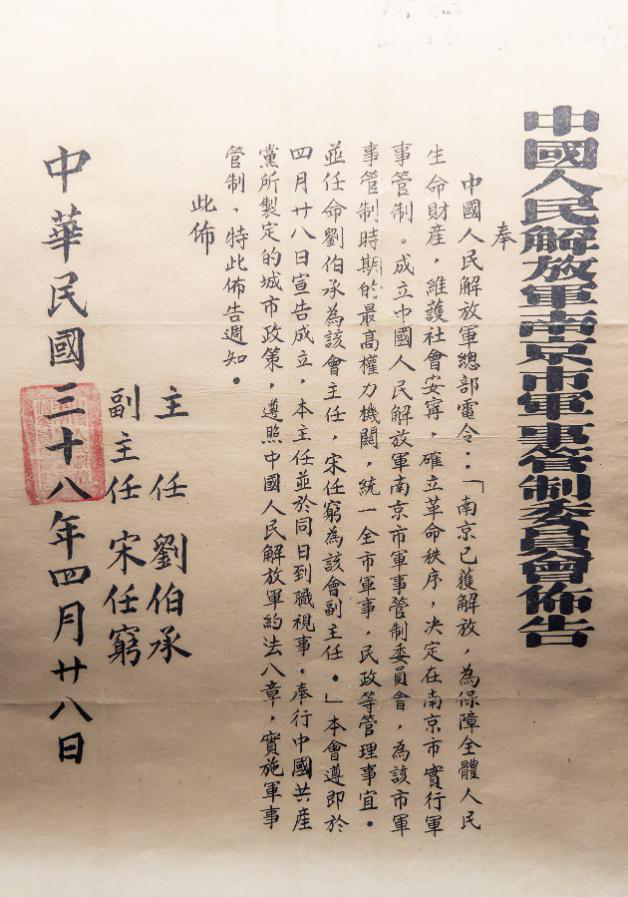 中國人民解放軍南京市軍事管制委員會佈告
奉
中國人民解放軍總部電令：「南京已獲解放，為保障全體人民
生命財產，維護社會安寧，確立革命秩序，決定在南京市實行軍
事管制。成立中國人民解放軍南京市軍事管制委員會，為該市軍
事管制時期的最高權力機關，統一全市軍事，民政等管理事宜。
並任命劉伯承為該會主任，宋任窮為該會副主任。」本會遵即於
四月廿八日宣告成立，本主任並於同日到職視事。奉行中國共產
黨所製定的城市政策，遵照中國人民解放軍約法八章，實施軍事
管制、特此佈告週知。
此佈
主任 劉伯承
副主任 宋任窮
中華民國三十八年四月廿八日